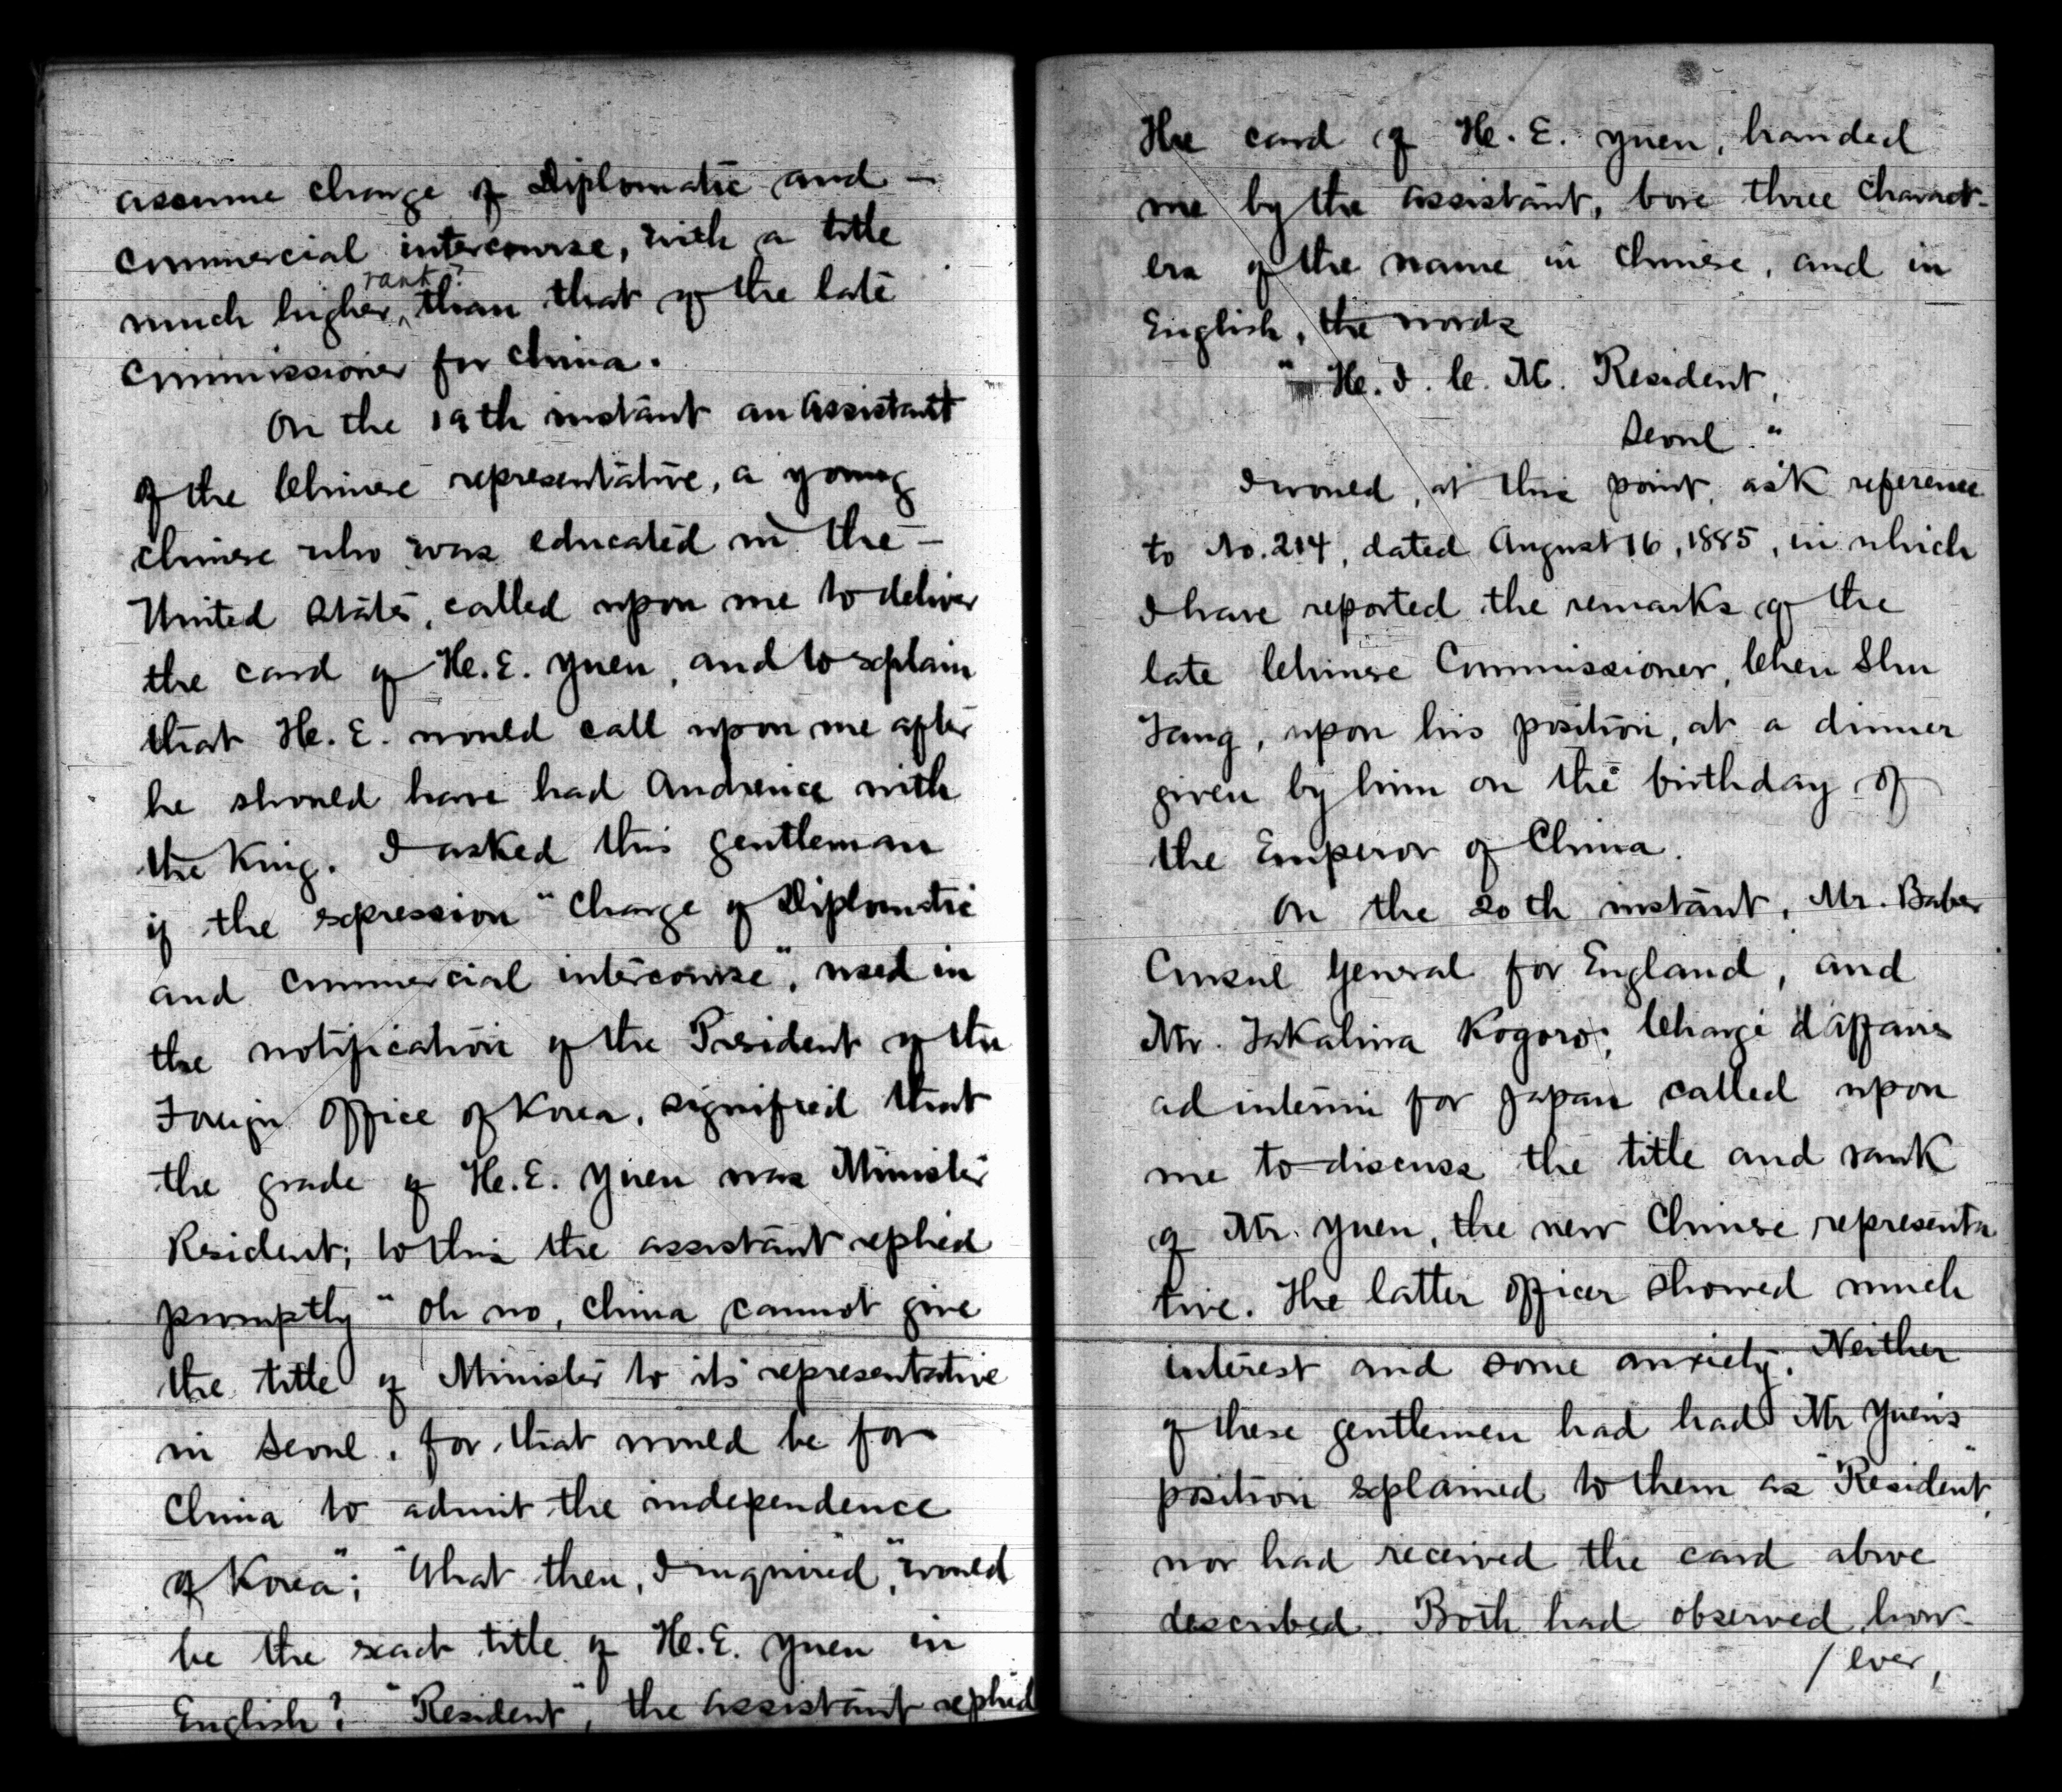 assume charge of Diplomatic and –
Commercial intercourse, with a title
rank?
much higher, than that of the late
Commissioner for China.
On the 19th instant an Assistant
of the Chinese representative, a young
Chinese who was educated in the –
United States, called upon me to deliver
the card of H. E. Yuen, and to explain
that H. E. would call upon me after
he should have had Audience with
the King. I asked this gentleman
if the expression "Charge of Diplomatic
and Commercial intercourse", used in
the notification of the President of the
Foreign Office of Korea, signified that
the grade of H. E. Yuen was Minister
Resident; to this the assistant replied
promptly "Oh no, China cannot give
the title of Minister to its representative
in Seoul, for that would be for
China to admit the independence
of Korea"; "What then, I inquired", "would
be the exact title of H. E. Yuen in
English? "Resident", the assistant replied
The card of H. E. Yuen, handed
me by the assistant, bore three charact-
ers of the name in Chinese, and in
English, the words
"H. I. C. M. Resident,
Seoul."
I would, at this point, ask reference
to No. 214, dated August 16, 1885, in which
I have reported the remarks of the
late Chinese Commissioner, Chen Shu
Tang, upon his position, at a dinner
given by him on the birthday of
the Emperor of China.
On the 20th instant, Mr. Baber
Consul General for England, and
Mr. Takahira Kogoro, Chargé d'Affaires
ad interim for Japan called upon
me to discuss the title and rank
of Mr. Yuen, the new Chinese representa
tive. The latter officer showed much
interest and some anxiety. Neither
of these gentlemen had had Mr Yuen's
position explained to them as "Resident",
nor had received the card above
described. Both had observed, how-
/ ever,